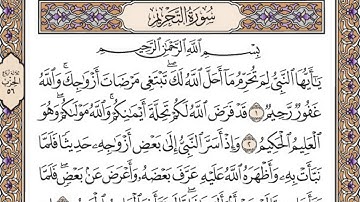 سُورَةُ التَّحْرِيمِ
بِسْمِ اللَّهِ الرَّحْمَٰنِ الرَّحِيمِ
يَا أَيُّهَا النَّبِيُّ لِمَ تُحَرِّمُ مَا أَحَلَّ اللَّهُ لَكَ ۖ تَبْتَغِي مَرْضَاتَ أَزْوَاجِكَ ۚ وَاللَّهُ
غَفُورٌ رَّحِيمٌ ١ قَدْ فَرَضَ اللَّهُ لَكُمْ تَحِلَّةَ أَيْمَانِكُمْ ۚ وَاللَّهُ مَوْلَاكُمْ ۖ وَهُوَ
الْعَلِيمُ الْحَكِيمُ ٢ وَإِذْ أَسَرَّ النَّبِيُّ إِلَىٰ بَعْضِ أَزْوَاجِهِ حَدِيثًا فَلَمَّا
نَبَّأَتْ بِهِ وَأَظْهَرَهُ اللَّهُ عَلَيْهِ عَرَّفَ بَعْضَهُ وَأَعْرَضَ عَن بَعْضٍ ۖ فَلَمَّا